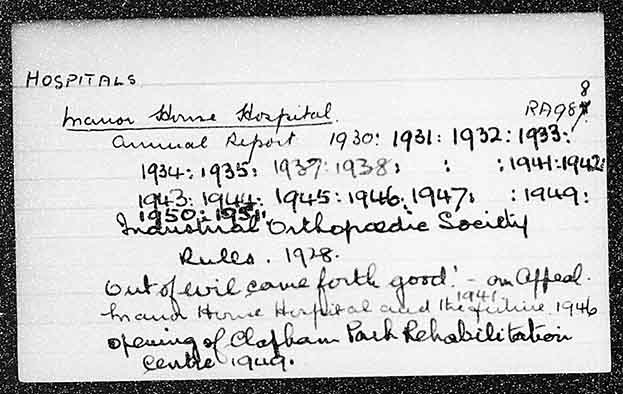 HOSPITALS
8
Manor House Hospital. RA98
Annual Report 1930: 1931: 1932: 1933:
1934: 1935: 1937: 1938: : : 1941: 1942:
1943: 1944: 1945: 1946: 1947: : 1949:
1950: 1951:
Industrial Orthopædic Society
Rules. 1928.
Out of evil came forth good! - an Appeal.
1941
Manor House Hospital and the future 1946
opening of Clapham Park Rehabilitation
Centre 1949.